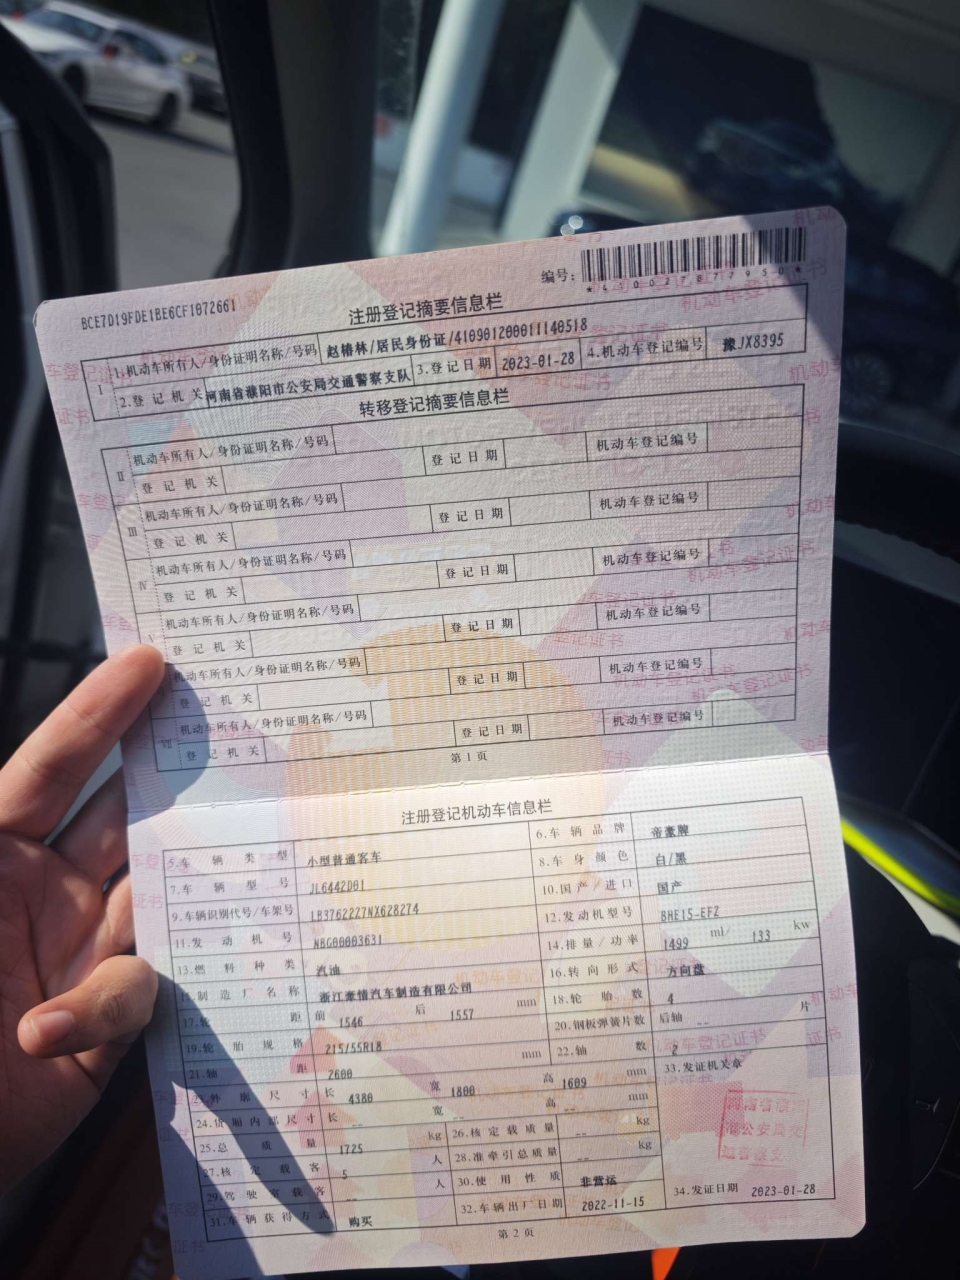 BCE7D19FDE1BE6CF1B72661
编号:
注册登记摘要信息栏
I 1.机动车所有人/身份证明名称/号码 赵椿林/居民身份证/410901200011140518
2.登记机关 河南省濮阳市公安局交通警察支队 3.登记日期 2023-01-28 4.机动车登记编号 豫JX8395
转移登记摘要信息栏
II 机动车所有人/身份证明名称/号码
登记机关 登记日期 机动车登记编号
III 机动车所有人/身份证明名称/号码
登记机关 登记日期 机动车登记编号
IV 机动车所有人/身份证明名称/号码
登记机关 登记日期 机动车登记编号
V 机动车所有人/身份证明名称/号码
登记机关 登记日期 机动车登记编号
机动车所有人/身份证明名称/号码
登记机关 登记日期 机动车登记编号
VII 机动车所有人/身份证明名称/号码
登记机关 登记日期 机动车登记编号
第1页
注册登记机动车信息栏
5.车辆类型 小型普通客车 6.车辆品牌 帝豪牌
7.车辆型号 JL6442D01 8.车身颜色 白/黑
9.车辆识别代号/车架号 LB37622Z7NX628274 10.国产/进口 国产
11.发动机号 NBG00003631 12.发动机型号 BHE15-EFZ
13.燃料种类 汽油 14.排量/功率 1499 ml/ 133 kw
15.制造厂名称 浙江豪情汽车制造有限公司 16.转向形式 方向盘
17.轮距 前 1546 后 1557 mm 18.轮胎数 4
19.轮胎规格 215/55R18 20.钢板弹簧片数 后轴 -- 片
21.轴距 2600 mm 22.轴数 2
23.外廓尺寸 长 4380 宽 1800 高 1609 mm 33.发证机关章
24.货厢内部尺寸 长 -- 宽 -- 高 -- mm
25.总质量 1725 kg 26.核定载质量 -- kg
27.核定载客 5 人 28.准牵引总质量 -- kg
29.驾驶室载客 -- 人 30.使用性质 非营运
31.车辆获得方式 购买 32.车辆出厂日期 2022-11-15 34.发证日期 2023-01-28
第2页